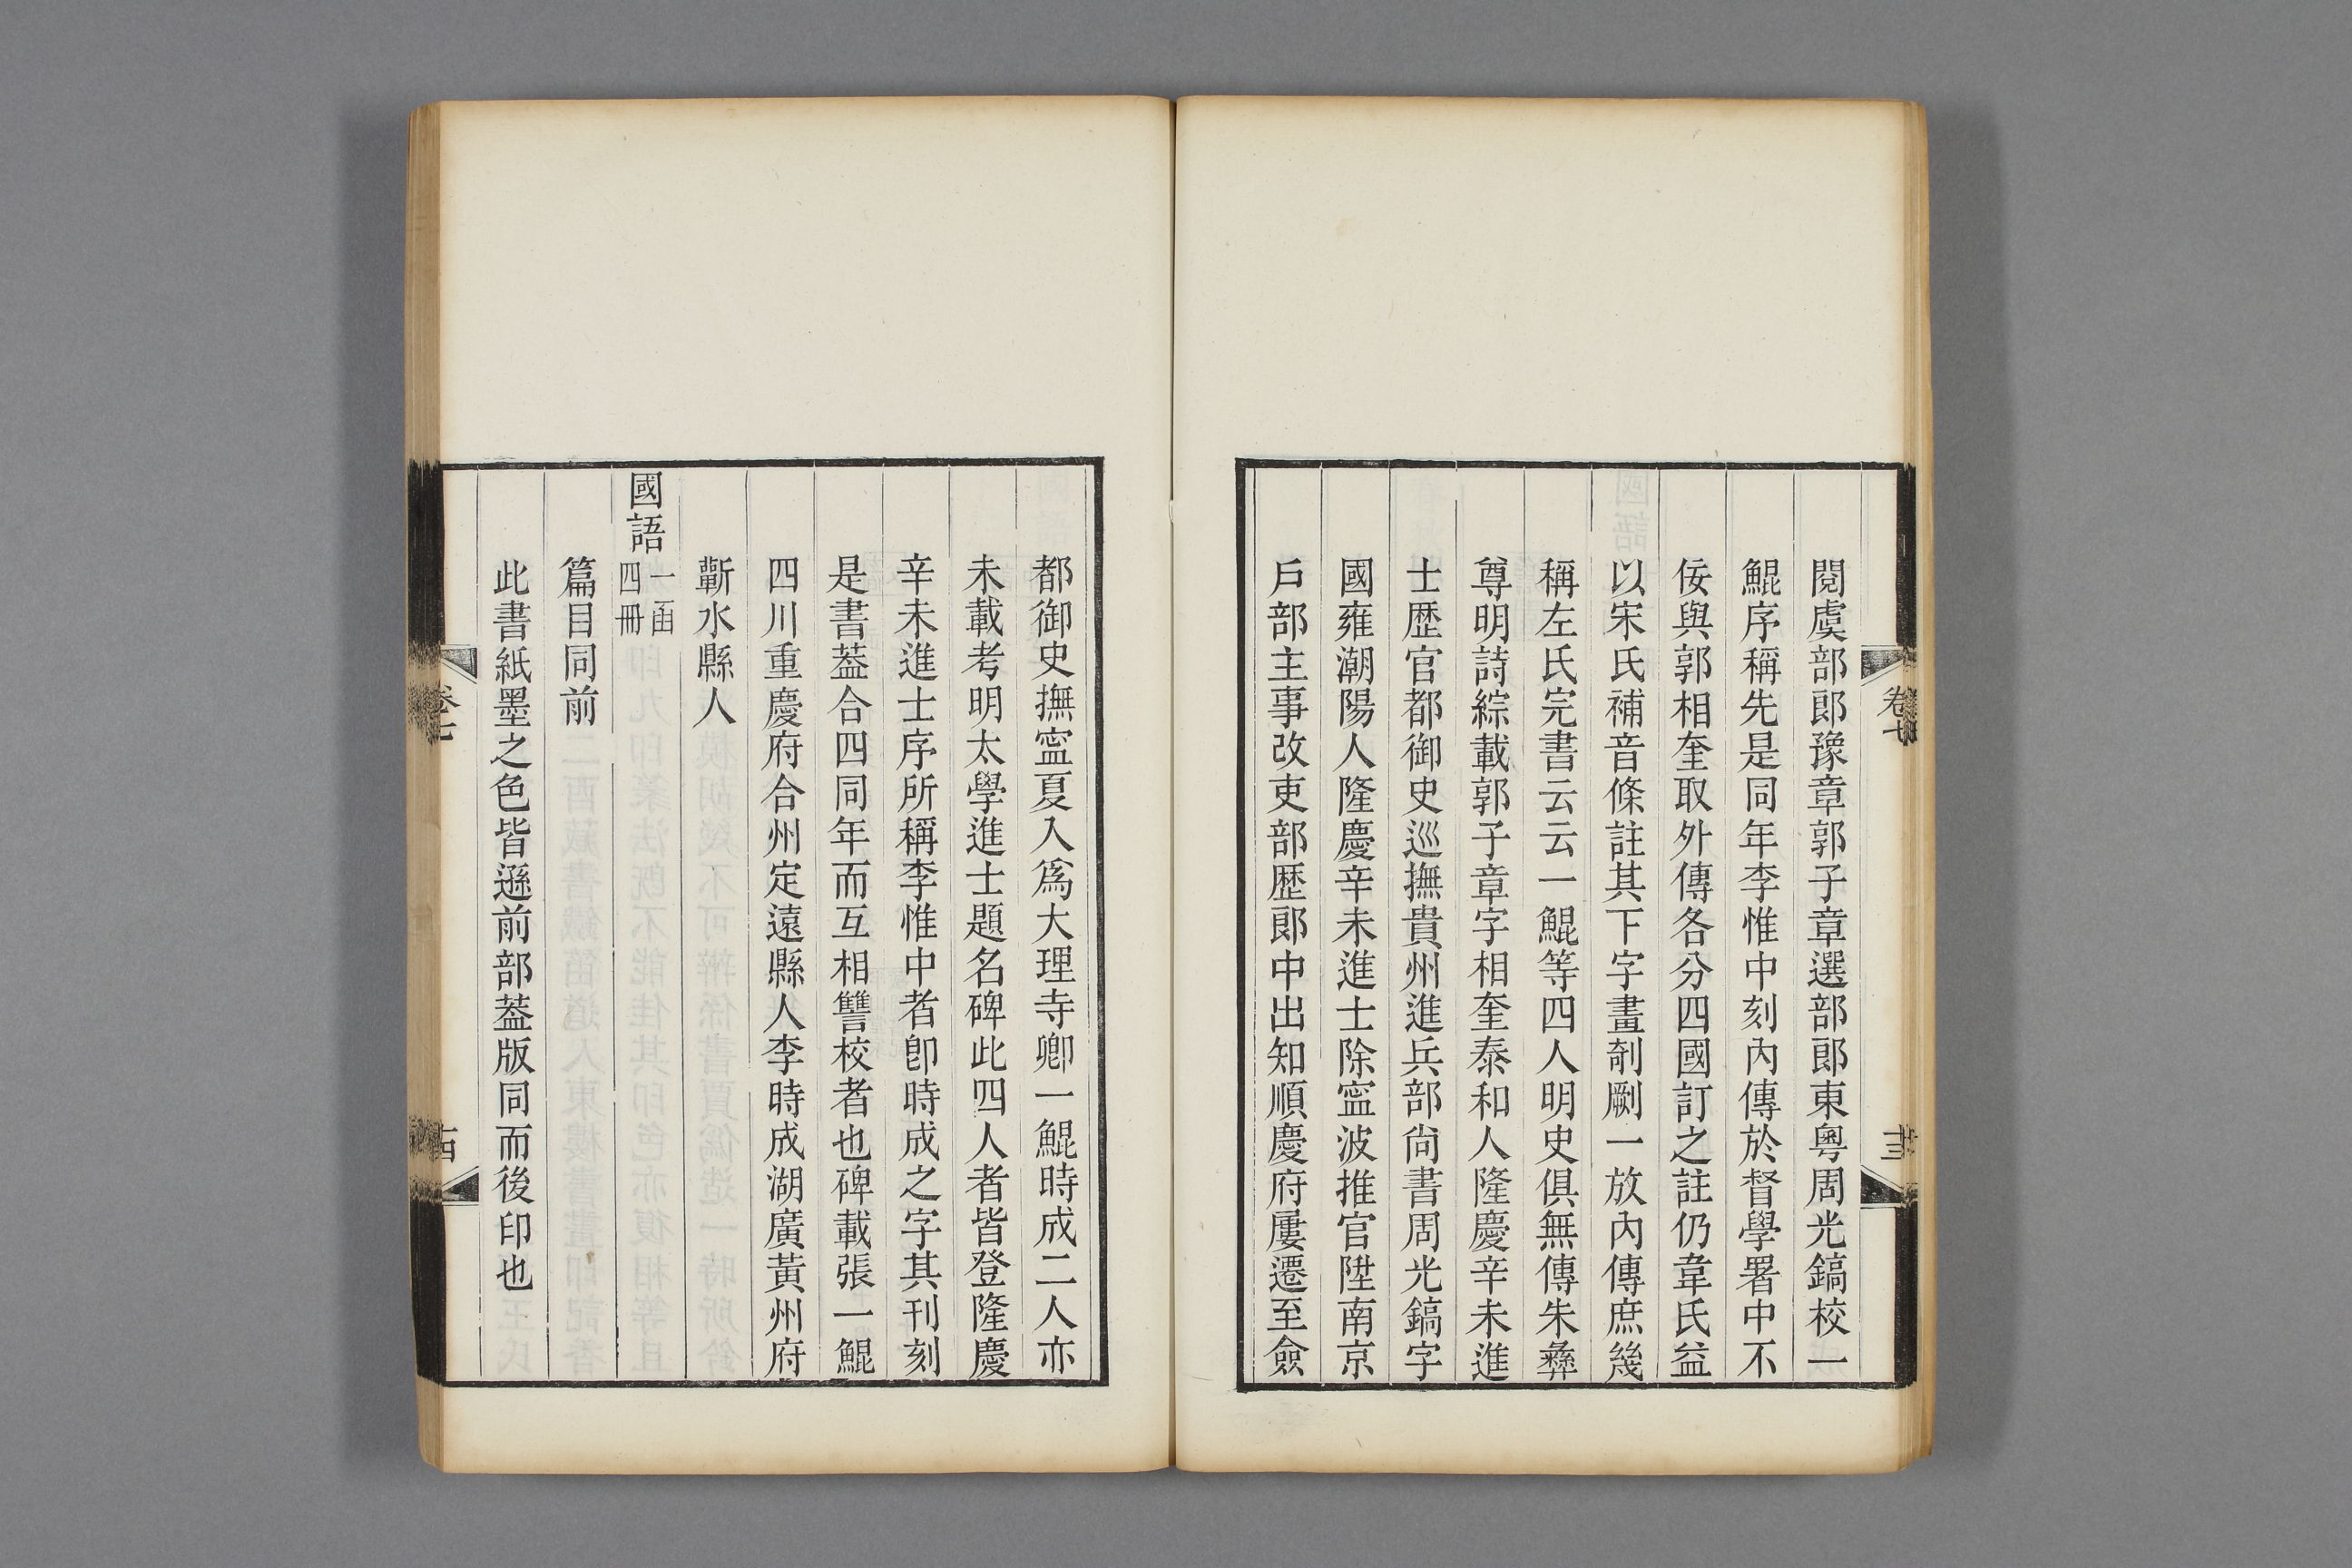 閱虞部郎豫章郭子章選部郎東粵周光鎬校一
鯤序稱先是同年李惟中刻內傳於督學署中不
佞與郭相奎取外傳各分四國訂之註仍韋氏益
以宋氏補音條註其下字畫剞劂一放內傳庶幾
稱左氏完書云云一鯤等四人明史俱無傳朱彝
尊明詩綜載郭子章字相奎泰和人隆慶辛未進
士歷官都御史巡撫貴州進兵部尙書周光鎬字
國雍潮陽人隆慶辛未進士除寍波推官陞南京
戶部主事改吏部歷郎中出知順慶府屢遷至僉
卷七
十三
都御史撫寍夏入爲大理寺卿一鯤時成二人亦
未載考明太學進士題名碑此四人者皆登隆慶
辛未進士序所稱李惟中者卽時成之字其刊刻
是書葢合四同年而互相讐校者也碑載張一鯤
四川重慶府合州定遠縣人李時成湖廣黃州府
蘄水縣人
國語 一函四冊
篇目同前
此書紙墨之色皆遜前部葢版同而後印也
卷七
十四